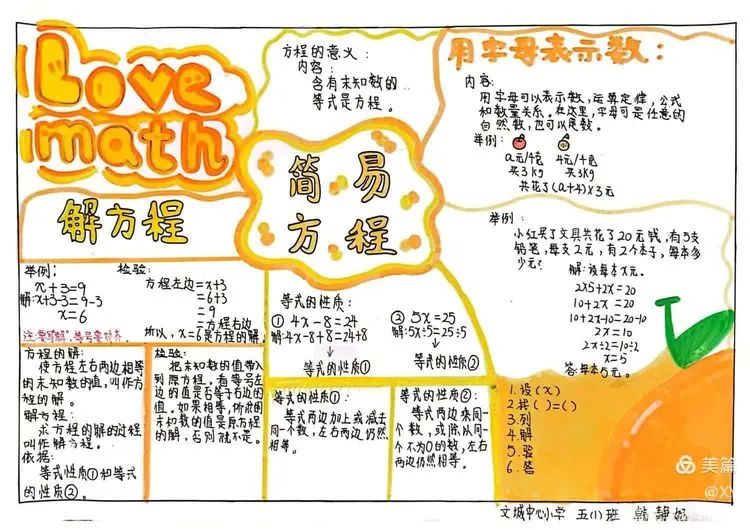 Love
math
简易
方程
方程的意义：
内容：
含有未知数的
等式是方程。
用字母表示数：
内容：
用字母可以表示数，运算定律，公式
和数量关系。在这里，字母可是任意的
自然数，也可以是数。
举例：
a元/千克 4元/千克
买3kg 买3kg
共花了(a+4)×3元
解方程
举例：
x+3=9
解:x+3-3=9-3
x=6
注:要写“解”，等号要对齐
检验：
方程左边=x+3
=6+3
=9
=方程右边
所以，x=6是方程的解。
等式的性质：
① 4x-8=24
解:4x-8+8=24+8
等式的性质①
② 5x=25
解:5x÷5=25÷5
等式的性质②
举例：
小红买了文具共花了20元钱，有5支
铅笔，每支2元，有2个本子，每本多
少元？
解：设每本x元。
2x5+2x=20
10+2x=20
10+2x-10=20-10
2x=10
2x÷2=10÷2
x=5
答：每本5元。
方程的解：
使方程左右两边相等
的未知数的值，叫作方
程的解。
解方程：
求方程的解的过程
叫作解方程。
依据：
等式性质①和等式
的性质②。
检验：
把未知数的值带入
到原方程，看等号左
边的值是否等于右边的
值，如果相等，所求的
未知数的值是原方程
的解，否则就不是。
等式的性质①：
等式两边加上或减去
同一个数，左右两边仍然
相等。
等式的性质②：
等式两边乘同一
个数，或除以同一
个不为0的数，左右
两边仍然相等。
1.设(x)
2.找( )=( )
3.列
4.解
5.验
6.答
文城中心小学 五(1)班 韩静妮
美篇
@XY